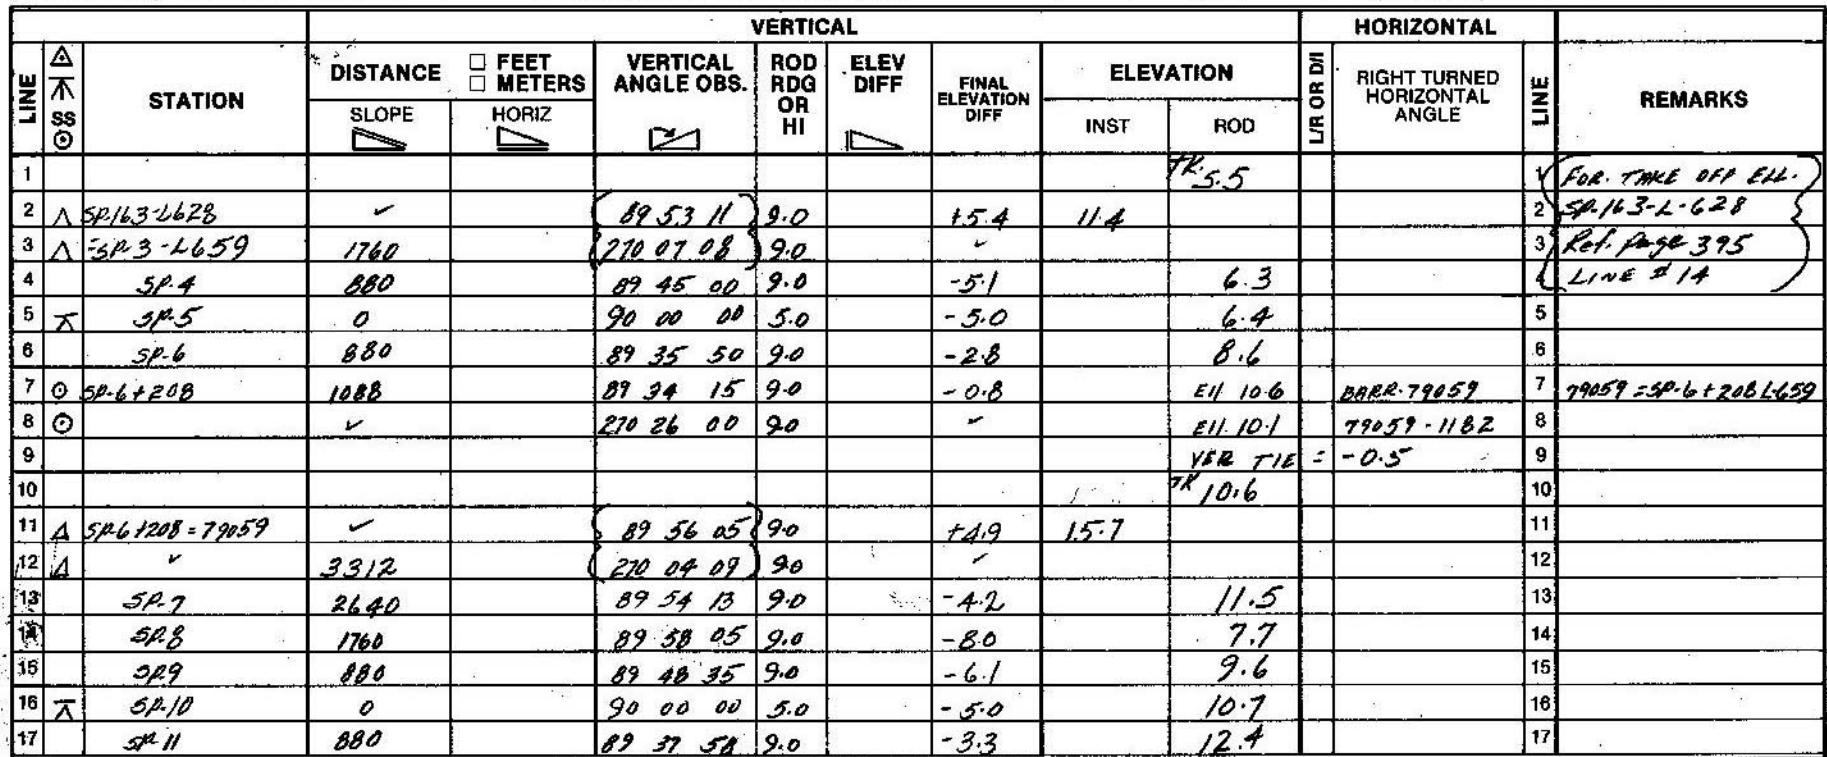 VERTICAL HORIZONTAL
LINE SS STATION DISTANCE □ FEET □ METERS VERTICAL ANGLE OBS. ROD RDG OR HI ELEV DIFF FINAL ELEVATION DIFF ELEVATION L/R OR D/I RIGHT TURNED HORIZONTAL ANGLE LINE REMARKS
SLOPE HORIZ INST ROD
1 TK. 5.5 1 FOR. TAKE OFF ELL.
2 SP.163-L628 ✓ 89 53 11 9.0 +5.4 11.4 2 SP.163-L-628
3 =SP-3-L659 1760 270 07 08 9.0 ✓ 3 Ref. Page 395
4 SP.4 880 89 45 00 9.0 -5.1 6.3 4 LINE # 14
5 SP.5 0 90 00 00 5.0 -5.0 6.4 5
6 SP-6 880 89 35 50 9.0 -2.8 8.6 6
7 SP-6+208 1088 89 34 15 9.0 -0.8 Ell 10.6 BARR.79059 7 79059=SP-6+208 L-659
8 ✓ 270 26 00 9.0 ✓ Ell. 10.1 79059-1182 8
9 VER TIE = -0.5 9
10 TK 10.6 10
11 SP-6+208=79059 ✓ 89 56 05 9.0 +4.9 15.7 11
12 ✓ 3312 270 04 09 9.0 ✓ 12
13 SP.7 2640 89 54 13 9.0 -4.2 11.5 13
14 SP.8 1760 89 58 05 9.0 -8.0 7.7 14
15 SP.9 880 89 48 35 9.0 -6.1 9.6 15
16 SP.10 0 90 00 00 5.0 -5.0 10.7 16
17 SP.11 880 89 37 58 9.0 -3.3 12.4 17